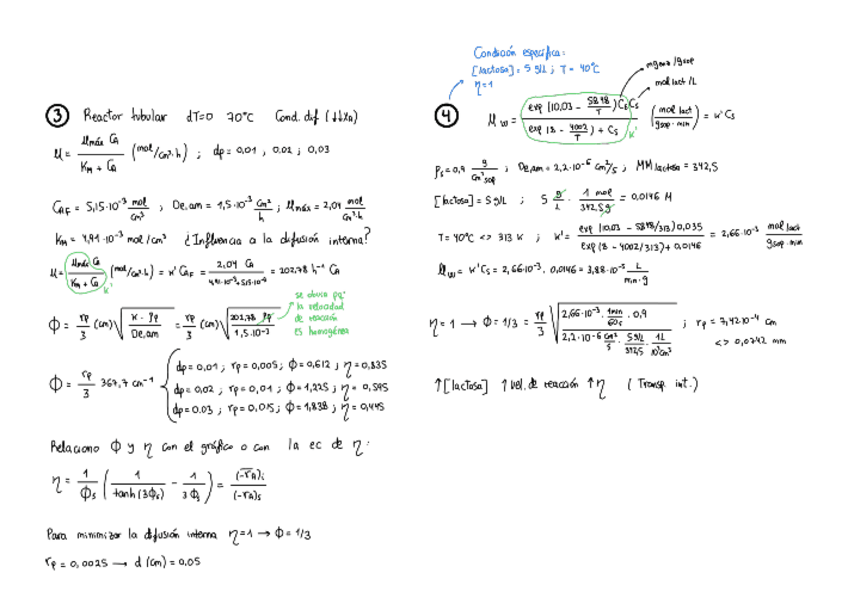 3 Reactor tubular dT=0 70°C Cond. dif (↓↓XA)
μ = μmáx CA / (KM + CA) (mol/cm³·h) ; dp = 0,01 , 0,02 ; 0,03
CAF = 5,15·10⁻³ mol/cm³ ; De,am = 1,5·10⁻³ cm²/h ; μmáx = 2,04 mol/cm³·h
KM = 4,91·10⁻³ mol/cm³ ¿Influencia a la difusión interna?
μ = μmáx CA / (KM + CA) (mol/cm³·h) = k' CAF = 2,04 CA / (4,91·10⁻³+5,15·10⁻³) = 202,78 h⁻¹ CA
k'
se obvia pq
la velocidad
de reacción
es homogénea
Φ = rp/3 (cm) √(k · ρp / De,am) = rp/3 (cm) √(202,78 ρp / 1,5·10⁻³)
Φ = rp/3 367,7 cm⁻¹
dp = 0,01 ; rp = 0,005 ; Φ = 0,612 ; η = 0,835
dp = 0,02 ; rp = 0,01 ; Φ = 1,225 ; η = 0,595
dp = 0.03 ; rp = 0,015 ; Φ = 1,838 ; η = 0,445
Relaciono Φ y η con el gráfico o con la ec de η:
η = 1/Φs (1/tanh(3Φs) − 1/3Φs) = (−rA)i / (−rA)s
Para minimizar la difusión interna η=1 → Φ = 1/3
rp = 0,0025 → d (cm) = 0,05
Condición específica:
[lactosa] = 5 g/L ; T = 40°C
η=1
mgenz/gsop
mol lact/L
4 μw = exp (10,03 − 5848/T) CE CS / (exp (8 − 4002/T) + CS) (mol lact / gsop · min) = k' CS
k'
ρs = 0,9 g/cm³sop ; De,am = 2,2·10⁻⁶ cm²/s ; MM lactosa = 342,5
[lactosa] = 5 g/L ; 5 g/L · 1 mol/342,5 g = 0,0146 M
T = 40°C <> 313 K ; k' = exp (10,03 − 5848/313) 0,035 / (exp (8 − 4002/313) + 0,0146) = 2,66·10⁻³ mol lact / gsop·min
μw = k' CS = 2,66·10⁻³ · 0,0146 = 3,88·10⁻⁵ L/min·g
η = 1 → Φ = 1/3 = rp/3 √(2,66·10⁻³ · 1min/60s · 0,9 / (2,2·10⁻⁶ cm²/s · 5 g/L/342,5 · 1L/10³cm³)) ; rp = 7,42·10⁻⁴ cm
<> 0,0742 mm
↑[lactosa] ↑vel. de reacción ↑η (Transp. int.)